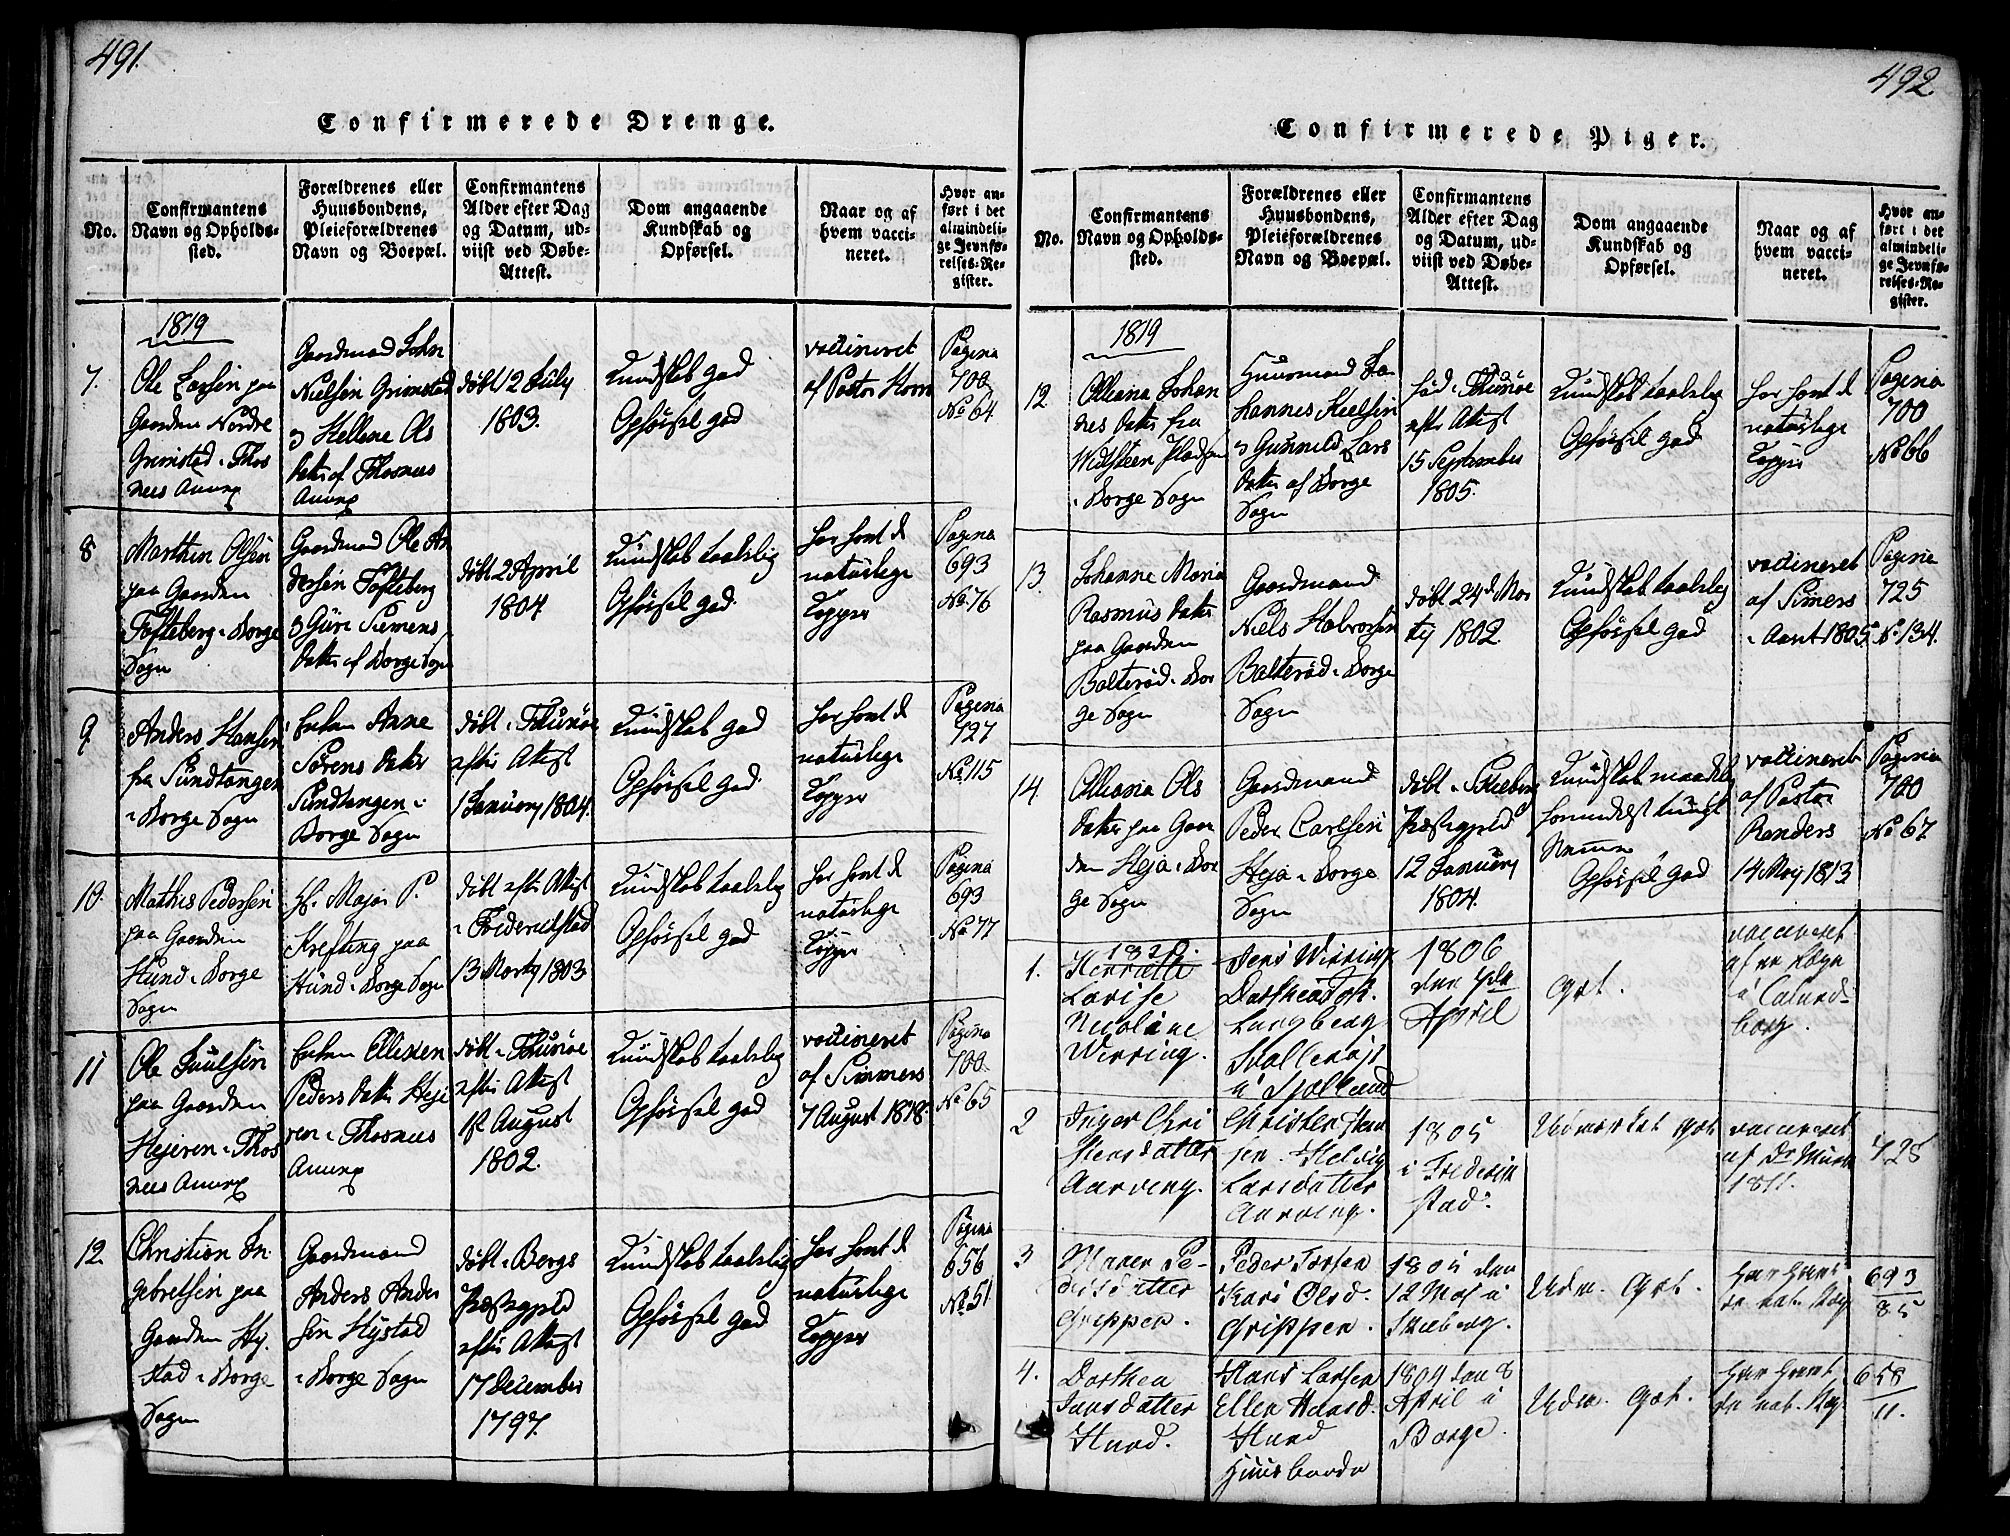 491.
Confirmerede Drenge.
No.
Confirmantens
Navn og Opholds-
sted.
Forældrenes eller
Huusbondens,
Pleieforældrenes
Navn og Boepæl.
Confirmantens
Alder efter Dag
og Datum, ud-
viist ved Døbe-
Attest.
Dom angaaende
Kundskab og
Opførsel.
Naar og af
hvem vacci-
neret.
Hvor an-
ført i det
almindeli-
ge Jevnfø-
relses-Re-
gister.
1819
7.
Ole Larsen paa
Gaarden Nordre
Grimstad i Thos
nees Annex
Gaardmand John
Nielsen Grimstad
og Hellene Ols
datter af Thosnees
Annex
døbt 12 July
1803.
Kundskab god
Opførsel god
vaccineret
af Pastor Horn
Pagina
700
No 64
8
Marthin Olsen
paa Gaarden
Tofteberg i Borge
Sogn
Gaardmand Ole An
dersen Tofteberg
og Guri Siemens
datter af Borge Sogn
døbt 2 April
1804
Kundskab taalelig
Opførsel god
har havt de
naturlige
Kopper
Pagina
693
No 76
9
Anders Hansen
fra Sundtangen
i Borge Sogn
Enken Anne
Sørens datter
Sundtangen i
Borge Sogn
døbt i Thunøe
efter Attest
1 Januar 1804.
Kundskab god
Opførsel god
har havt de
naturlige
Kopper
Pagina
727
No 115
10.
Mathis Pedersen
paa Gaarden
Hund i Borge
Sogn
Hr. Major P.
Krefting paa
Hund i Borge Sogn
døbt efter Attest
i Friderichstad
13 Marty 1803
Kundskab taalelig
Opførsel god
har havt de
naturlige
Kopper
Pagina
693
No 77
11
Ole Poulsen
paa Gaarden
Hejeren i Thos
nees Annex
Enken Ellisten
Peders datter Heje
ren i Thosnees
Annex
døbt i Thunøe
efter Attest
1st August
1802.
Kundskab taalelig
Opførsel god
vaccineret
af Simmers
7 August 1818.
Pagina
700
No 65
12.
Christian In
gebretsen paa
Gaarden Hy
stad i Borge
Sogn
Gaardmand
Anders Ander
sen Hystad
i Borge Sogn
døbt i Bergs
Præstegield
efter Attest
17 December
1797.
Kundskab taalelig
Opførsel god
har havt de
naturlige
Kopper
Pagina
656
No 51
492.
Confirmerede Piger.
No.
Confirmantens
Navn og Opholds-
sted.
Forældrenes eller
Huusbondens,
Pleieforældrenes
Navn og Boepæl.
Confirmantens
Alder efter Dag
og Datum, ud-
viist ved Døbe-
Attest.
Dom angaaende
Kundskab og
Opførsel.
Naar og af
hvem vacci-
neret.
Hvor an-
ført i det
almindeli-
ge Jevnfø-
relses-Re-
gister.
1819
12
Olleana Johan
nes datter fra
Pladsen
i Borge Sogn
Huusmand Jo
hannes Neelsen
og Gunnild Lars
datter af Borge
Sogn
fød i Thunøe
efter Attest
15 September
1805.
Kundskab taalelig
Opførsel god
har havt de
naturlige
Kopper
Pagina
700
No 66
13.
Johanne Maria
Rasmus datter
paa Gaarden
Balterød i Bor
ge Sogn
Gaardmand
Niels Halvorsen
Balterød i Borge
Sogn
døbt 24d Mar
ty 1802
Kundskab taalelig
Opførsel god
vaccineret
af Simers
i Aaret 1805
Pagina
725
No 134.
14
Olleana Ols
datter paa Gaar
den Heja i Bor
ge Sogn
Gaardmand
Peder Carlsen
Heja i Borge
Sogn
døbt i Skieberg
Præstegield
12 Januar
1804.
Kundskab maadelig
formedelst tungt
Nemme
Opførsel god
vaccineret
af Pastor
Randers
14 Maj 1813
Pagina
700
No 67
1820.
1.
Henriette
Lovise
Nicoline
Wirring.
Jens Wirring
Dorthea
Langberg
i Sjælland
1806
den 4de
April
Got.
vaccineret
af en Læge
i Calund-
borg.
2
Inger Chri
stensdatter
Aarving.
Christen Han
sen. Helvig
Larsdatter
Aarving.
1805
i Frederik
stad.
Udmærket got
vaccineret
af Dr Munk
1811.
728
3
Maren Pe-
dersdatter
Grippen.
Peder Torsen
Kari Olsd.
Grippen.
1805 den
12 Maj i
Skieberg.
Udm. Got.
Har havt
de nat. Kop
693
85
4.
Dorthea
Jansdatter
Hund.
Hans Larsen
Ellen Hansd.
Hund
1804 den 8
April i
Borge.
Udm. Got.
Har havt
de nat. Kop
658
11.